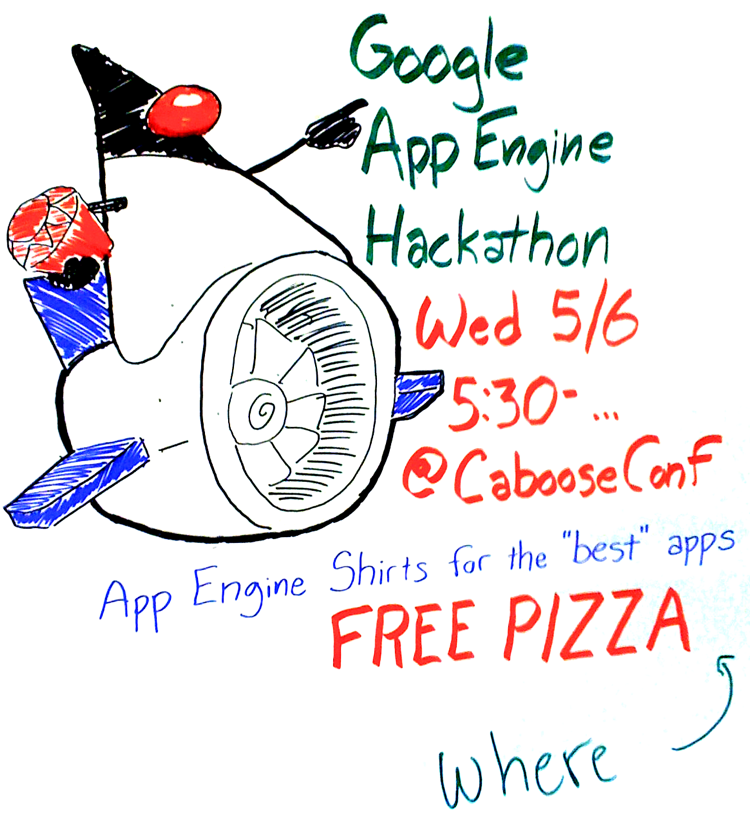 Google
App Engine
Hackathon
Wed 5/6
5:30-...
@CabooseConf
App Engine Shirts for the "best" apps
FREE PIZZA
where